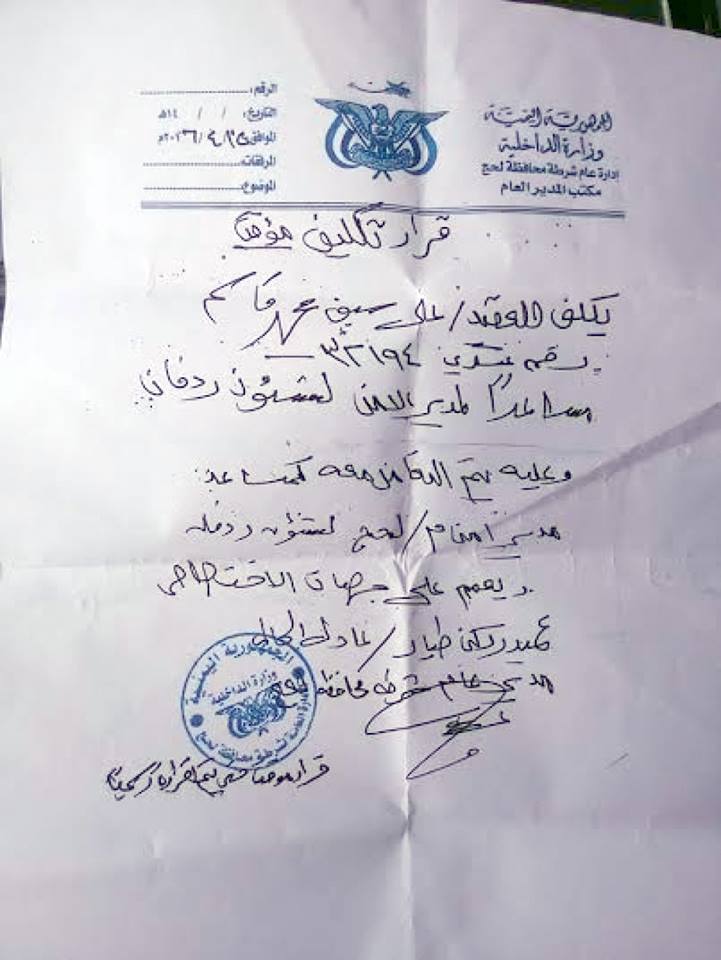 الجمهورية اليمنية
وزارة الداخلية
إدارة عام شرطة محافظة لحج
مكتب المدير العام
الرقم:
التاريخ: / / ١٤هـ
الموافق ٢٥/٤/٢٠٢٦م
المرفقات:
الموضوع:
قرار تكليف مؤقت
يكلف العقيد/ علي سيف محمد قاسم
رقم عسكري ٣٢١٩٤
مساعداً لمدير الامن لشؤون ردفان
وعليه يتم التعامل معه كمساعد
مدير امن م/ لحج لشؤون ردفان
ويعمم على جهات الاختصاص
عميد ركن طيار/ عادل الحالمي
مدير عام شرطة محافظة لحج
الجمهورية اليمنية
وزارة الداخلية
الإدارة العامة لشرطة محافظة لحج
قرار مؤقت